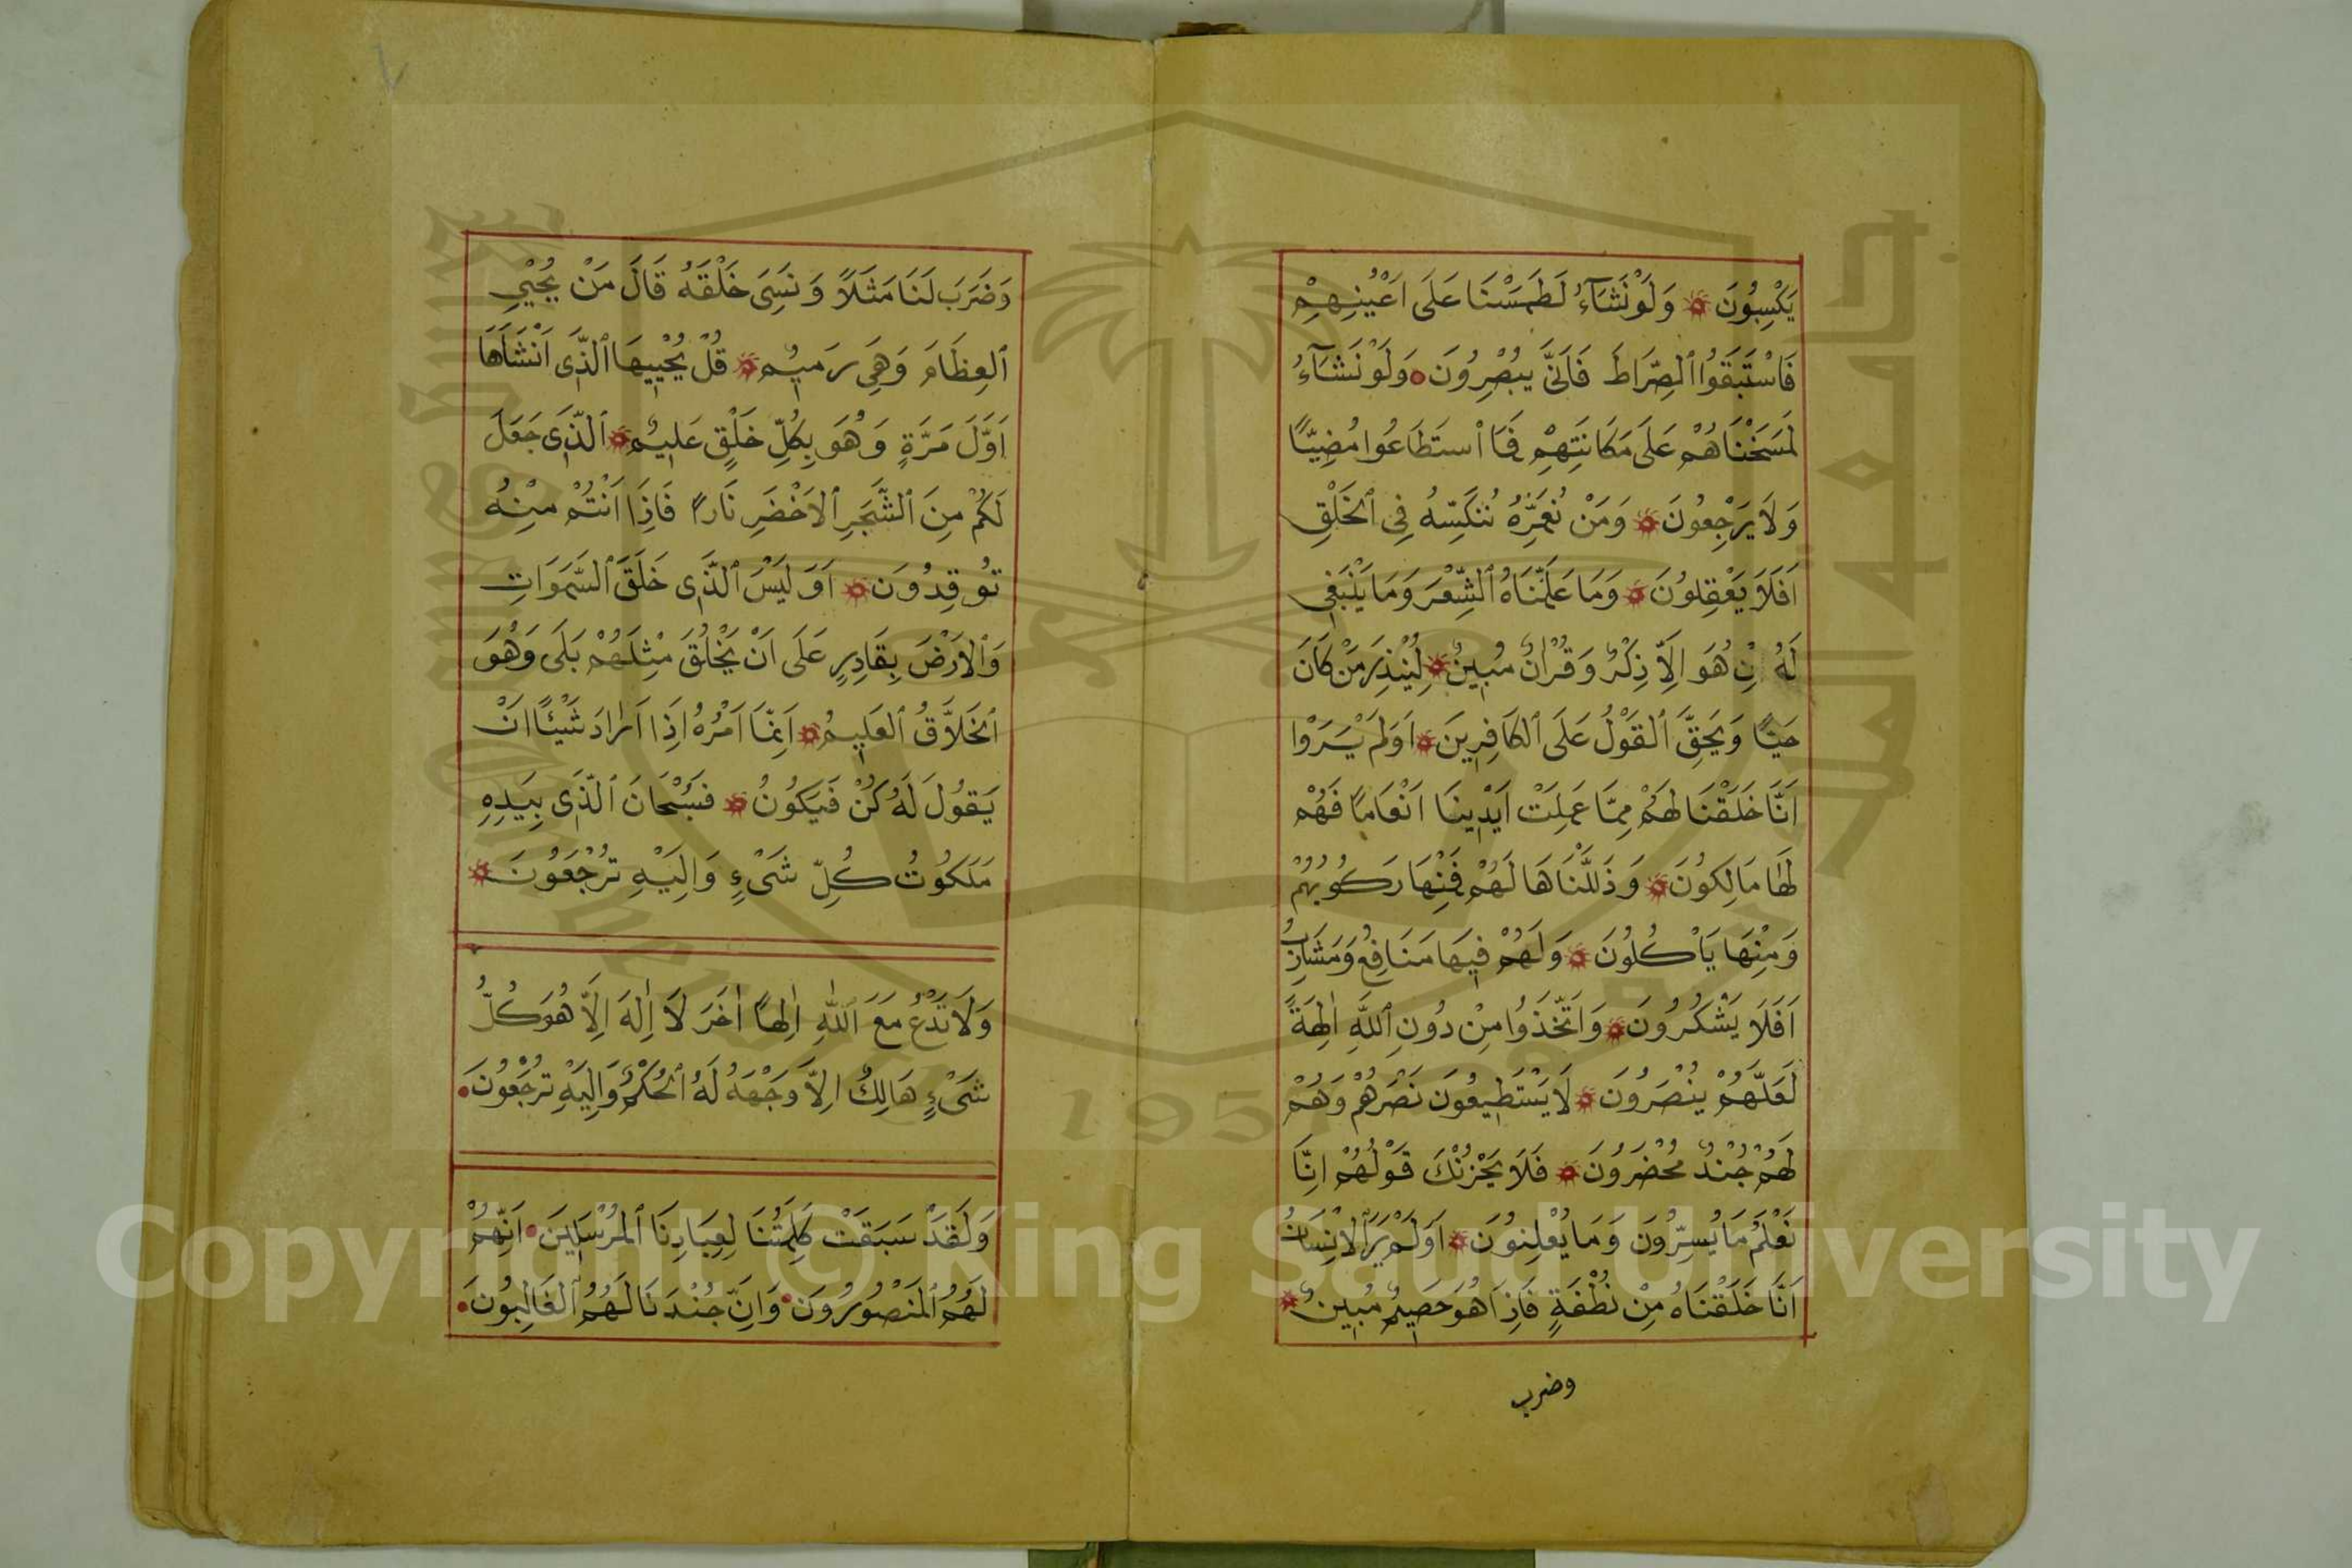 يَكْسِبُونَ وَلَوْ نَشَآءُ لَطَمَسْنَا عَلَى اَعْيُنِهِمْ
فَاسْتَبَقُوا ٱلصِّرَاطَ فَاَنَّى يُبْصِرُونَ وَلَوْ نَشَآءُ
لَمَسَخْنَاهُمْ عَلَى مَكَانَتِهِمْ فَمَا ٱسْتَطَاعُوا مُضِيًّا
وَلَا يَرْجِعُونَ وَمَنْ نُعَمِّرْهُ نُنَكِّسْهُ فِي ٱلْخَلْقِ
اَفَلَا يَعْقِلُونَ وَمَا عَلَّمْنَاهُ ٱلشِّعْرَ وَمَا يَنْبَغِي
لَهُ اِنْ هُوَ اِلَّا ذِكْرٌ وَقُرْاٰنٌ مُبِينٌ لِيُنْذِرَ مَنْ كَانَ
حَيًّا وَيَحِقَّ ٱلْقَوْلُ عَلَى ٱلْكَافِرِينَ اَوَلَمْ يَرَوْا
اَنَّا خَلَقْنَا لَهُمْ مِمَّا عَمِلَتْ اَيْدِينَا اَنْعَامًا فَهُمْ
لَهَا مَالِكُونَ وَذَلَّلْنَاهَا لَهُمْ فَمِنْهَا رَكُوبُهُمْ
وَمِنْهَا يَاْكُلُونَ وَلَهُمْ فِيهَا مَنَافِعُ وَمَشَارِبُ
اَفَلَا يَشْكُرُونَ وَاتَّخَذُوا مِنْ دُونِ ٱللَّهِ اٰلِهَةً
لَعَلَّهُمْ يُنْصَرُونَ لَا يَسْتَطِيعُونَ نَصْرَهُمْ وَهُمْ
لَهُمْ جُنْدٌ مُحْضَرُونَ فَلَا يَحْزُنْكَ قَوْلُهُمْ اِنَّا
نَعْلَمُ مَا يُسِرُّونَ وَمَا يُعْلِنُونَ اَوَلَمْ يَرَ ٱلْاِنْسَانُ
اَنَّا خَلَقْنَاهُ مِنْ نُطْفَةٍ فَاِذَا هُوَ خَصِيمٌ مُبِينٌ
وضرب
وَضَرَبَ لَنَا مَثَلًا وَنَسِيَ خَلْقَهُ قَالَ مَنْ يُحْيِي
ٱلْعِظَامَ وَهِيَ رَمِيمٌ قُلْ يُحْيِيهَا ٱلَّذِي اَنْشَاَهَا
اَوَّلَ مَرَّةٍ وَهُوَ بِكُلِّ خَلْقٍ عَلِيمٌ ٱلَّذِي جَعَلَ
لَكُمْ مِنَ ٱلشَّجَرِ ٱلْاَخْضَرِ نَارًا فَاِذَا اَنْتُمْ مِنْهُ
تُوقِدُونَ اَوَلَيْسَ ٱلَّذِي خَلَقَ ٱلسَّمَوَاتِ
وَٱلْاَرْضَ بِقَادِرٍ عَلَى اَنْ يَخْلُقَ مِثْلَهُمْ بَلَى وَهُوَ
ٱلْخَلَّاقُ ٱلْعَلِيمُ اِنَّمَا اَمْرُهُ اِذَا اَرَادَ شَيْئًا اَنْ
يَقُولَ لَهُ كُنْ فَيَكُونُ فَسُبْحَانَ ٱلَّذِي بِيَدِهِ
مَلَكُوتُ كُلِّ شَيْءٍ وَاِلَيْهِ تُرْجَعُونَ
وَلَا تَدْعُ مَعَ ٱللَّهِ اِلٰهًا اٰخَرَ لَا اِلٰهَ اِلَّا هُوَ كُلُّ
شَيْءٍ هَالِكٌ اِلَّا وَجْهَهُ لَهُ ٱلْحُكْمُ وَاِلَيْهِ تُرْجَعُونَ
وَلَقَدْ سَبَقَتْ كَلِمَتُنَا لِعِبَادِنَا ٱلْمُرْسَلِينَ اِنَّهُمْ
لَهُمُ ٱلْمَنْصُورُونَ وَاِنَّ جُنْدَنَا لَهُمُ ٱلْغَالِبُونَ
1957
Copyright © King Saud University